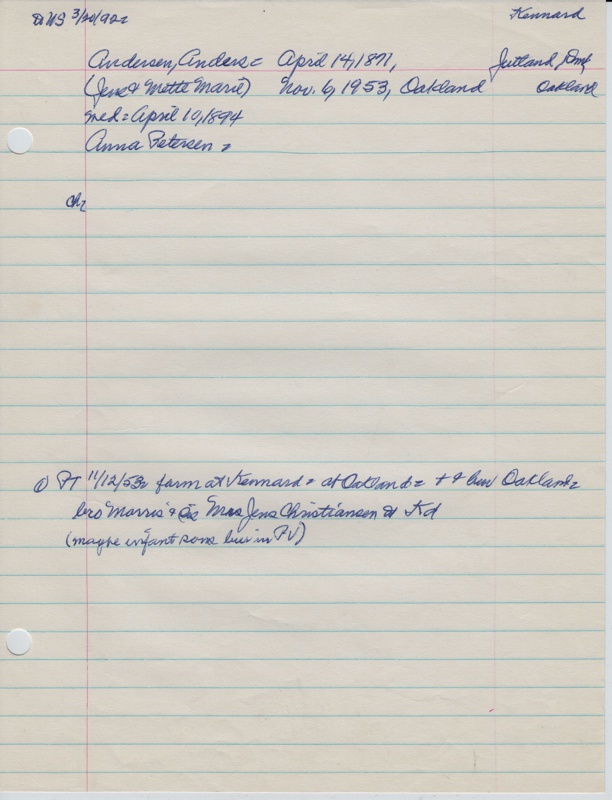 a US 3/20/92= Kennard
Andersen, Anders = April 14, 1871, Jutland, Dmk
(Jens & Mette Marie) Nov. 6, 1953, Oakland Oakland
med = April 10, 1894
Anna Petersen =
Ch=
① PT 11/12/53= farm at Kennard = at Oakland = + & bur Oakland=
bro Morris & sis Mrs Jens Christiansen at Kd
(maybe infant sons bur in PV)